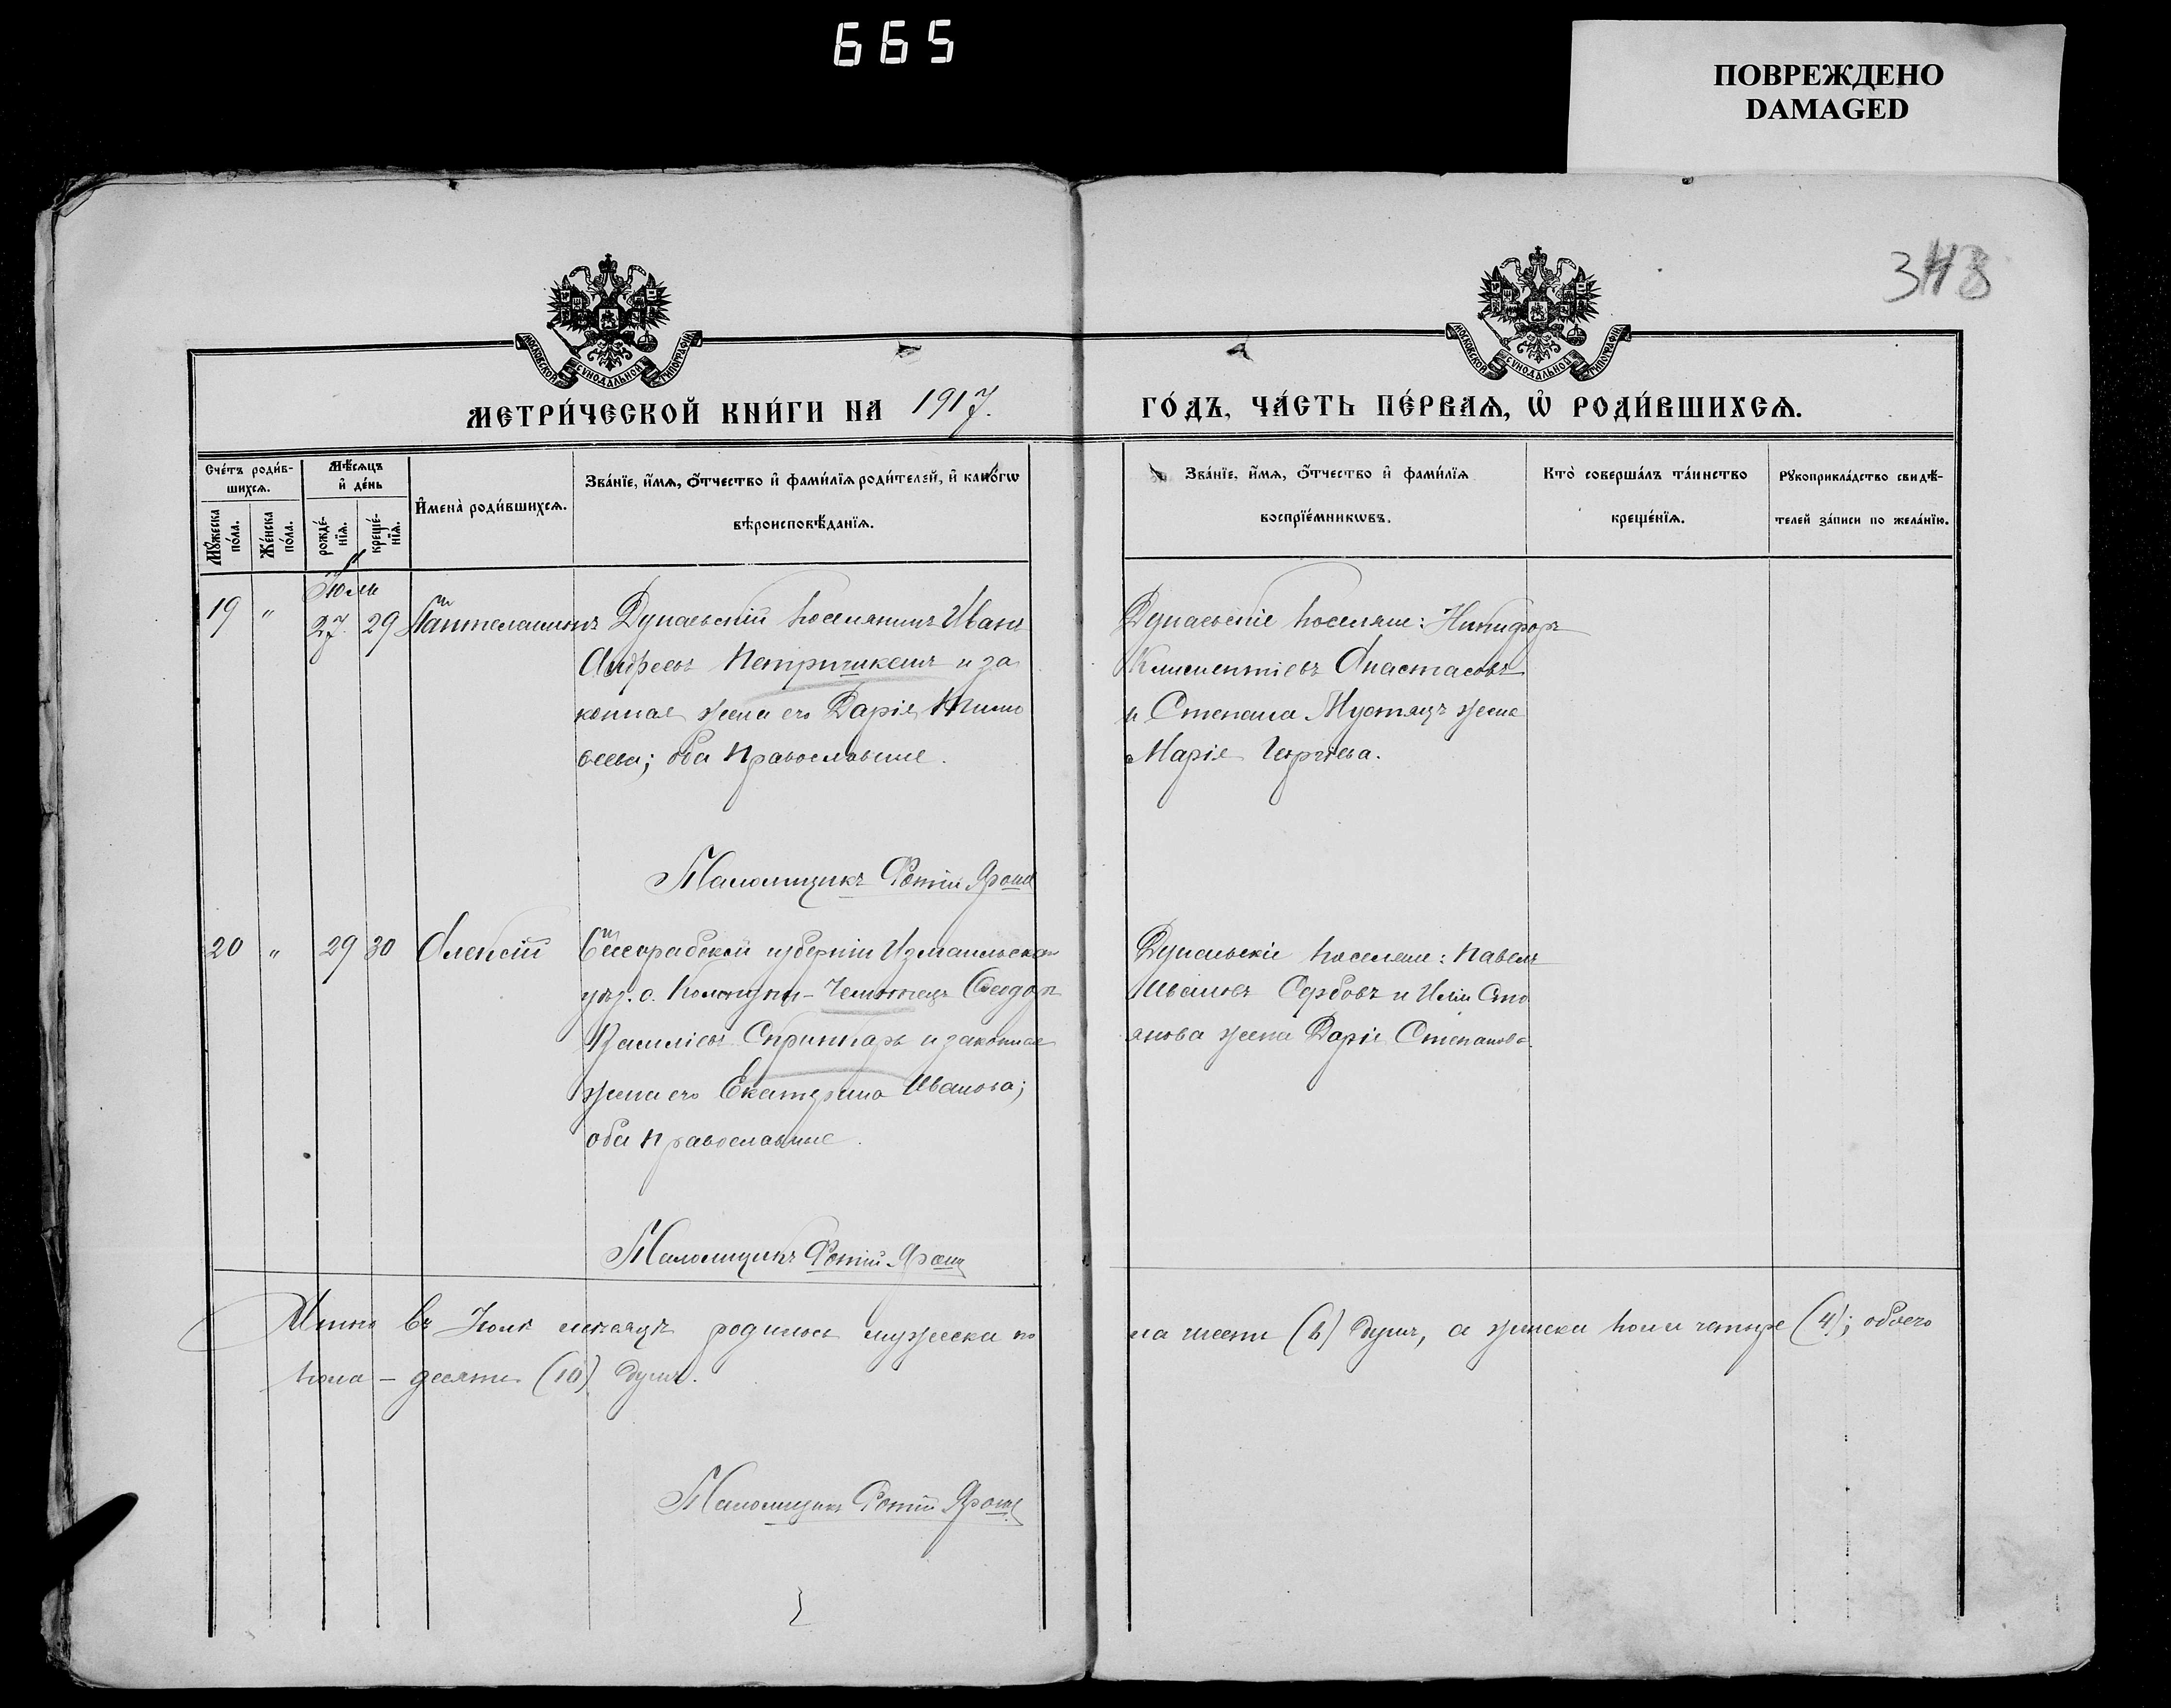 665
ПОВРЕЖДЕНО
DAMAGED
МОСКОВСКОЙ СѴНОДАЛЬНОЙ ТИПОГРАФІИ
МОСКОВСКОЙ СѴНОДАЛЬНОЙ ТИПОГРАФІИ
МЕТРИ́ЧЕСКОЙ КНИ́ГИ НА 1917.
ГО́ДЪ, ЧА́СТЬ ПЕ́РВАѦ, Ѡ҆ РОДИ́ВШИХСѦ.
Сче́тъ роди́в-
шихсѧ.
Мꙋ́жеска
по́ла.
Же́нска
по́ла.
Мѣ́сѧцъ
и҆ де́нь
рожде́-
нїѧ.
креще́-
нїѧ.
И҆мена̀ роди́вшихсѧ.
Зва́нїе, и҆́мѧ, ѻ҆́тчество и҆ фами́лїѧ роди́телей, и҆ како́гѡ
вѣроисповѣ́данїѧ.
Зва́нїе, и҆́мѧ, ѻ҆́тчество и҆ фами́лїѧ
воспрїе́мникѡвъ.
Кто̀ соверша́лъ та́инство
креще́нїѧ.
Рꙋкоприкла́дство свидѣ́-
телей за́писи по жела́нїю.
Іюль
19 " 27. 29 Пантелеимонъ Дунаевскій поселянинъ Иванъ
Андреевъ Петричикеинъ и за
конная жена его Дарія Тимо
ѳеева; оба православные.
Псаломщикъ Фотій Ярош
Дунаевскіе поселяне: Никифоръ
Климентіевъ Анастасовъ
и Степана Мустяцъ жена
Марія Георгіева.
20 " 29 30 Алексій Бессарабской губерніи Измаильскаго
уѣз. с. Ѳеодоръ
Василіевъ Спринчаръ и законная
жена его Екатерина Иванова;
оба православные.
Псаломщикъ Фотій Ярош
Дунаевскіе поселяне: Павелъ
Ивановъ Сербовъ и Иліи Сто
янова жена Дарія Степанова.
Итого въ Іюлѣ мѣсяцѣ родилось мужеска по
ла шесть (6) душъ, а женска пола четыре (4); обоего
пола - десять (10) душъ.
Псаломщикъ Фотій Ярош